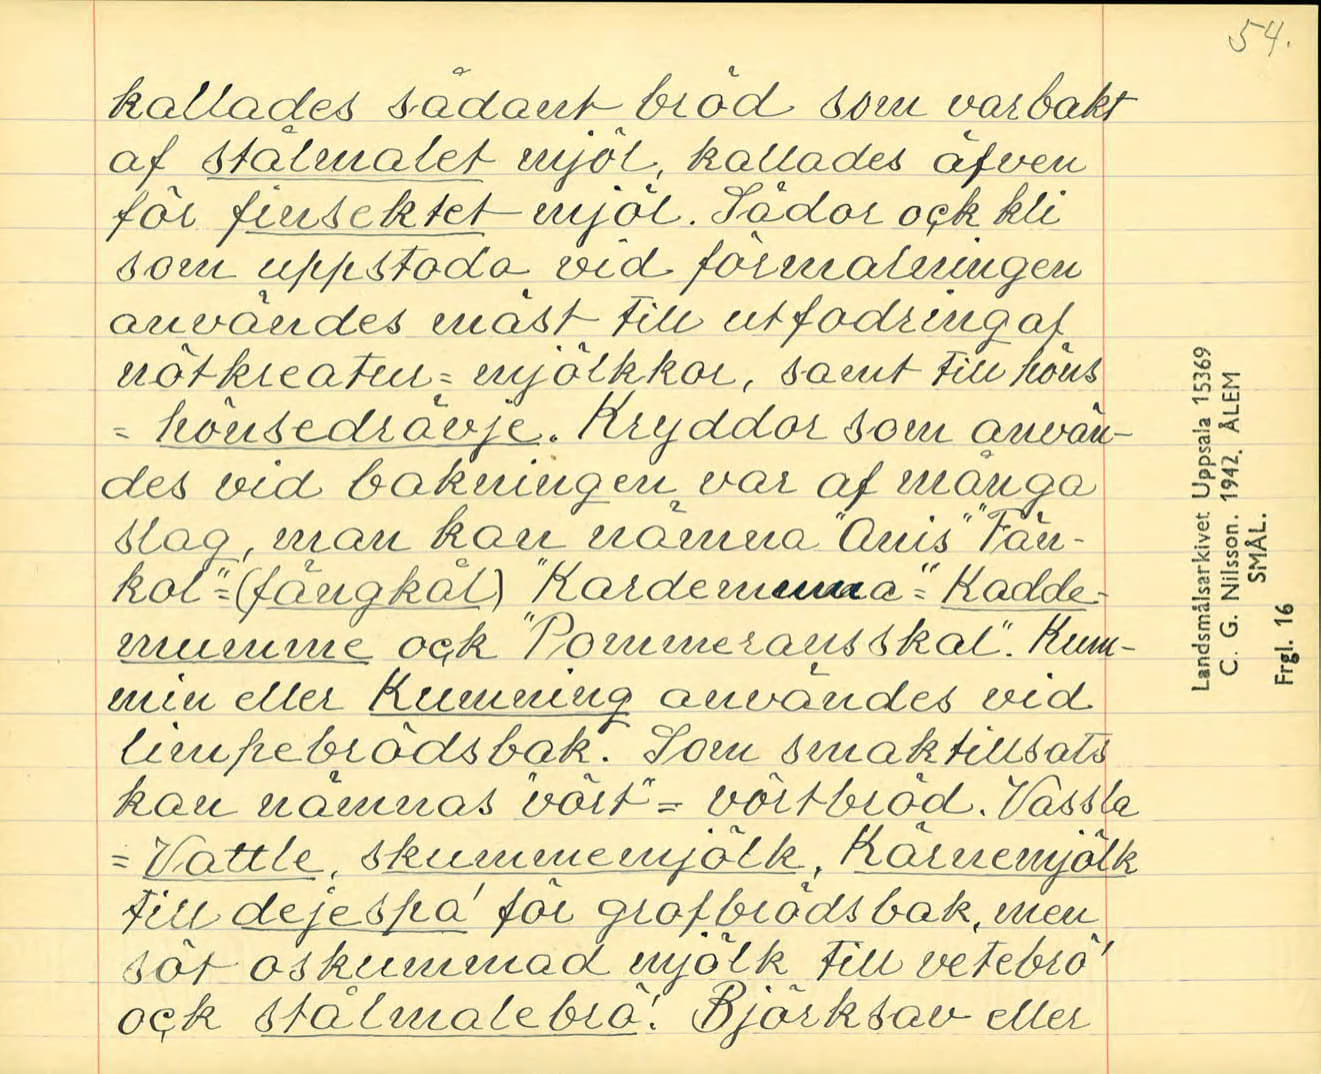 54.
kallades sådant bröd som var bakt
af stålmalet mjöl, kallades äfven
för finsektet mjöl. Sådor oçk kli
som uppstodo vid förmalningen
användes mäst till utfodring af
nötkreatur = mjölkkor, samt till höns
= hönsedrävje. Kryddor som använ-
des vid bakningen var af många
slag, man kan nämna "Anis" "Fän-
kol" = (fängkål) "Kardemumma" = Kadde-
mumme oçk "Pommeransskal". Kum-
min eller Kumming användes vid
limpebrödsbak. Som smaktillsats
kan nämnas "vört" = vörtbröd. Vassla
= Vattle, skummemjölk, Kärnemjölk
till dejespa' för grofbrödsbak, men
söt oskummad mjölk till vetebrö'
oçk stålmalebrö'. Björksav eller
Landsmålsarkivet Uppsala 15369
C. G. Nilsson. 1942. ÅLEM
SMÅL.
Frgl. 16